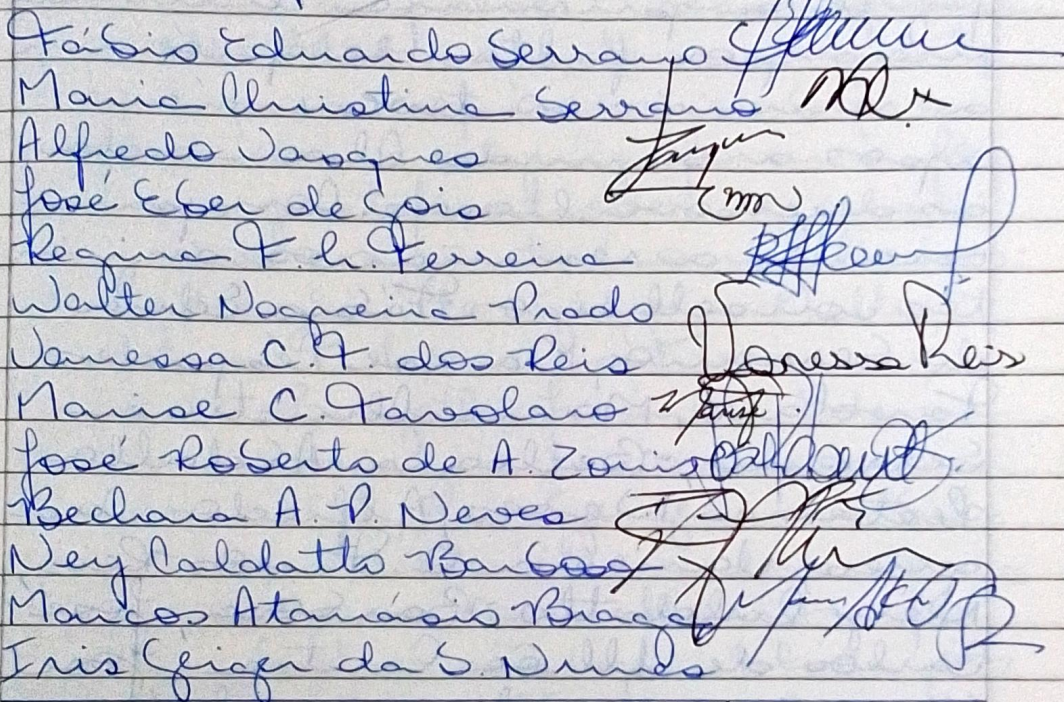 Fábio Eduardo Serrano
Maria Christina Serrano
Alfredo Vasques
José Eber de Gois
Regina F. h. Ferreira
Walter Nogueira Prado
Vanessa C. F. dos Reis Vanessa Reis
Marise C. Tavolaro Marise
José Roberto de A.
Bechara A. P. Neves
Ney Caldatto Barbosa
Marcos Atanásio Braga
Iris Geiger da S.